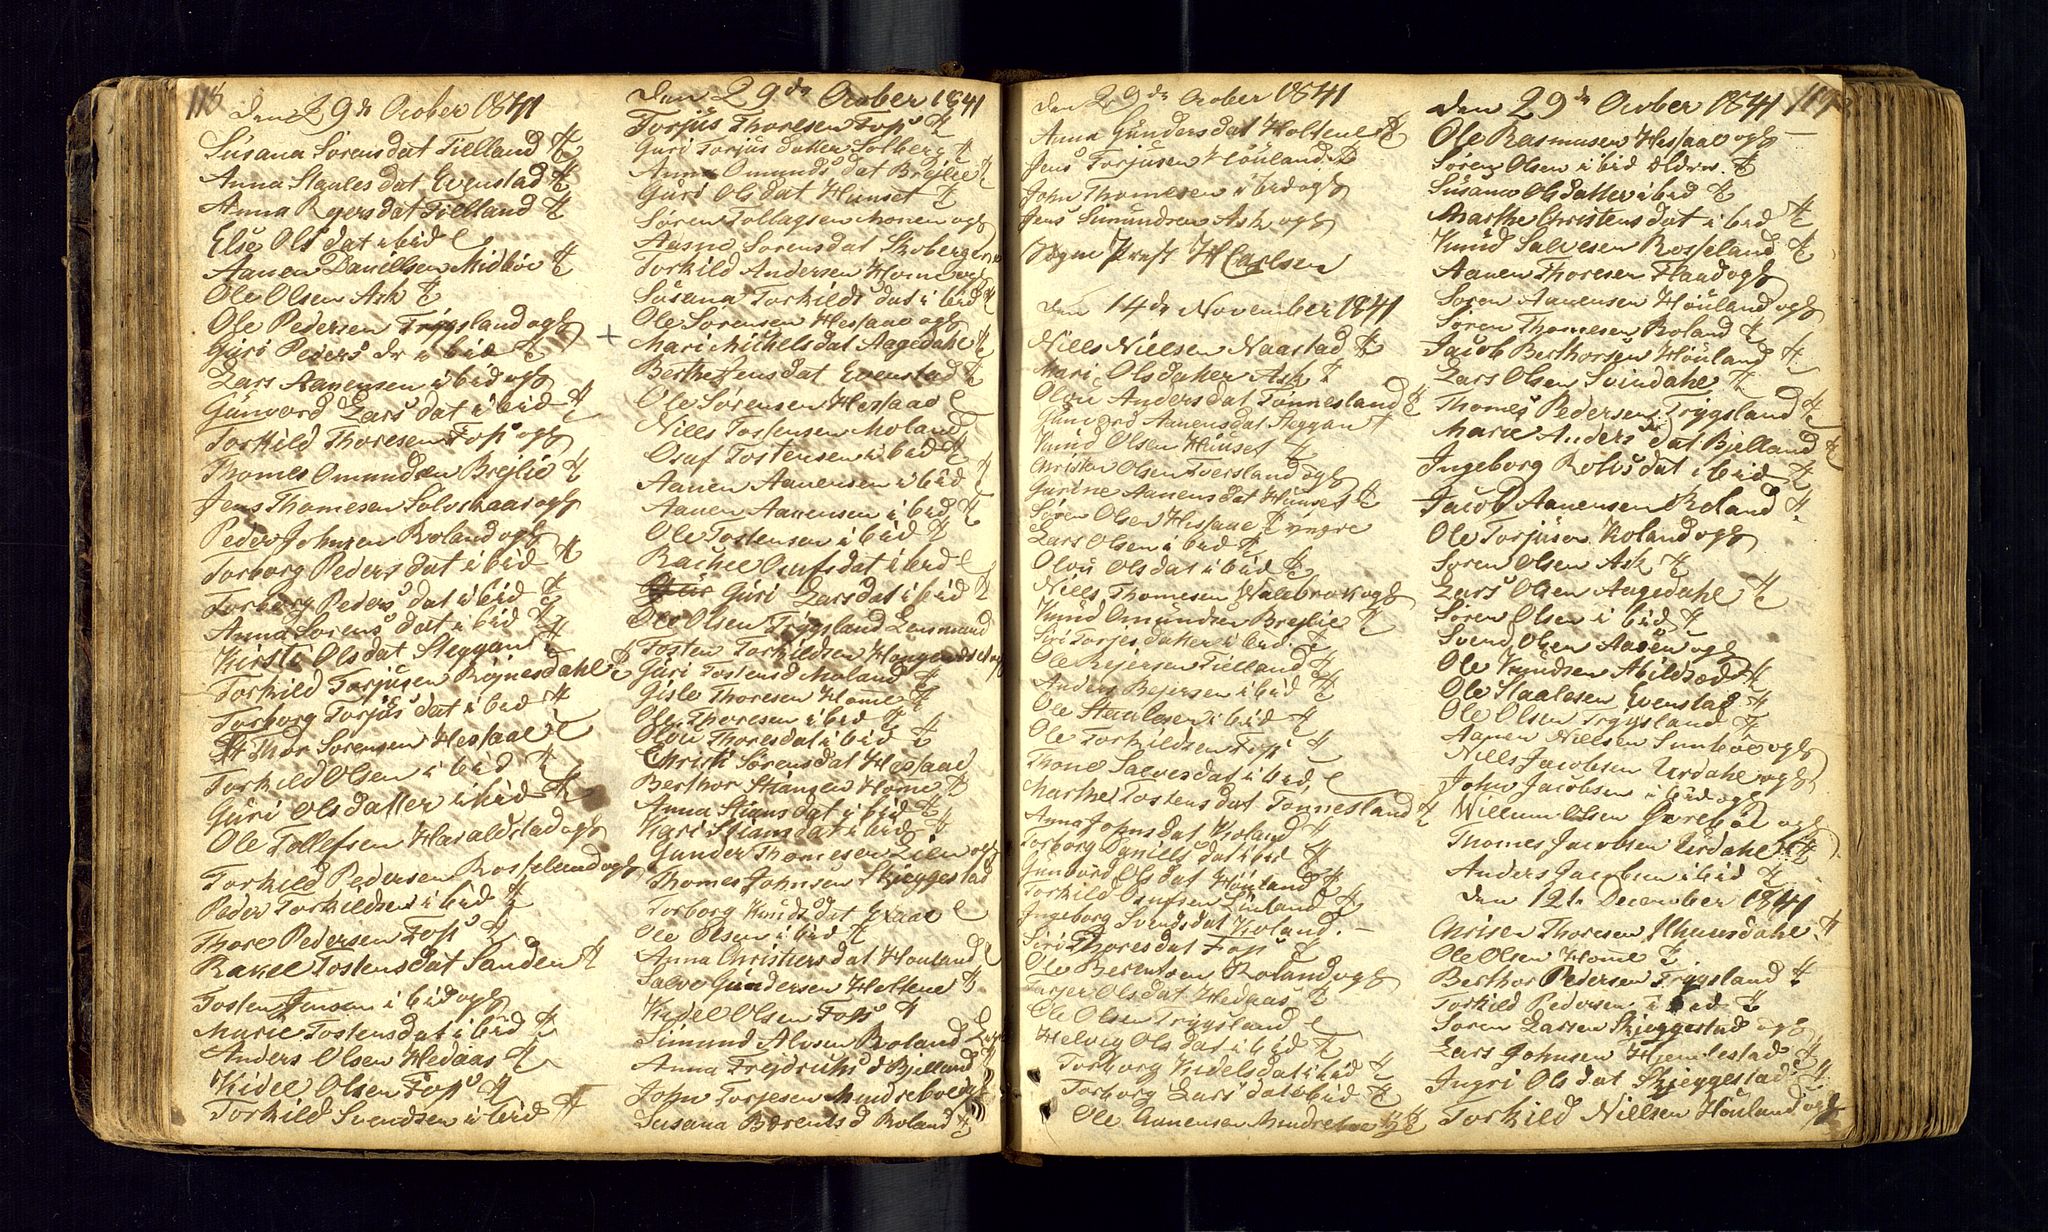 118
den 29de October 1841
Susana Sørens dat Fielland
Anna Staales dat Evenstad
Anna Reiers dat Fielland
Else Ols dat ibid
Aanen Daniellsen Midbøe
Ole Olsen Ask
Ole Pedersen Trygsland og
Guri Peders dr ibid
Lars Aanensen ibid og
Gunvord Lars dat ibid
Torkild Thoresen Fos og
Thomes Omundsen Brejlie
Jens Thomesen Solschaar og
Peder Johnsen Roland og
Torborg Peders dat ibid
Torborg Peders dat ibid
Anna Sørens dat ibid
Kirsti Ols dat Steggan
Torkild Torjusen Røjnesdahl
Torborg Torjus dat ibid
Thor Sørensen Hessaae
Torkild Olsen ibid
Guri Ols datter ibid
Ole Tollefsen Haraldstad og
Torkild Pedersen Rosseland og
Peder Torkildsen ibid
Thore Pedersen Fos
Rakel Tostens dat Sanden
Tosten Jensen ibid og
Marie Tostens dat ibid
Anders Olsen Hedaas
Kidel Olsen Fos
Torkild Svendsen ibid
den 29de October 1841
Torjus Thoresen Fos
Guri Torjus datter Solberg
Anna Omunds dat Brejlie
Guri Ols dat Hunset
Søren Tollagsen Monen og
Aasne Sørens dat Skoberg
Torkild Andersen Home og
Susana Torkilds dat ibid
Ole Sørensen Hessaae og
Mari Michels dat Aagedahl
Berthe Jens dat Evenstad
Ole Sørensen Hessaae
Nills Tostensen Moland
Osuf Tostensen ibid
Aanen Aanensen ibid
Aanen Aanensen ibid
Ole Tostensen ibid
Rachel Osufs dat ibid
Guri Lars dat ibid
Ole Olsen Trygsland Lensmand
Tosten Torkildsen
Guri Tostens d Moland
Gisle Thoresen Home
Ole Thoresen ibid
Olou Thores dat ibid
Christi Sørens dat Hessaae
Berthor Stiansen Home
Anna Stians dat ibid
Kari Stians dat ibid
Gunder Thomesen Lien og
Thomes Johnsen Skjeggestad
Torborg Knuds dat
Ole Olsen ibid
Anna Christens dat Houland
Salve Gundersen Holtene
Kidel Olsen Fos
Simund Alvsen Roland
Anna Frejdrichs d Bjelland
John Torjesen Mindreboe
Susana Berents d Roland
den 29de October 1841
Anna Gunders dat Holtene
Jens Torjusen Høuland
John Thomesen ibid og
Jens Simundsen Ask og
Sogne Præst H Carlsen
den 14de November 1841
Nills Nielsen Naastad
Mari Ols datter Ask
Olou Anders dat Tønnesland
Gunvord Aanens dat Steggan
Knud Olsen Hunset
Christen Olsen Tversland og
Gurine Aanens dat Hunset
Søren Olsen Hessaae yngre
Lars Olsen ibid
Olou Ols dat ibid
Nills Thomesen Walebrok og
Knud Omundsen Brejlie
Siri Torjes datter ibid
Ole Rejersen Fielland
Anders Rejersen ibid
Ole Staalesen ibid
Ole Torkildsen Fos
Thone Salves dat ibid
Marthe Tostens dat Tønnesland
Anna Johns dat Roland
Torborg Daniells dat ibid
Gunbord Ols dat Høuland
Torkild Osufsen
Ingeborg Svends dat Roland
Siri Thores dat Fos
Ole Berentsen Roland og
Ols dat Hedaas
Ole Olsen Trygsland
Helvig Ols dat ibid
Torborg Kidels dat ibid
Torborg Lars dat ibid
Ole Aanensen Mindreboe
119
den 29de October 1841
Ole Rasmusen Hessaae og
Søren Olsen ibid Eldre
Susane Ols datter ibid
Marthe Christens dat ibid
Knud Salvesen Rosseland
Aanen Thoresen Flaad og
Søren Aanensen Høuland og
Søren Thomesen Roland
Jacob Berthorsen Høuland
Lars Olsen Svindahl
Thomes Pedersen Trygsland
Marie Anders dat Bjelland
Ingeborg Rolvs dat ibid
Jacob Aanensen Roland
Ole Torjusen Roland og
Søren Olsen Ask
Lars Olsen Aagedahl
Søren Olsen ibid
Svend Olsen Aasen og
Ole Knudsen Abildsød
Ole Staalesen Evenstad
Ole Olsen Trygsland
Aanen Nillsen Sumboe og
Nills Jacobsen Urdahl og
John Jacobsen ibid og
Willum Olsen Øvrebøe og
Thomes Jacobsen Urdahl
Anders Jacobsen ibid
den 12te December 1841
Chrisen Thoresen
Ole Olsen Home
Berthor Pedersen Trygsland
Torkild Pedersen ibid
Søren Larsen Skjeggestad og
Lars Johnsen Hjemlestad
Ingri Ols dat Skjeggestad
Torkild Nillsen Høuland og